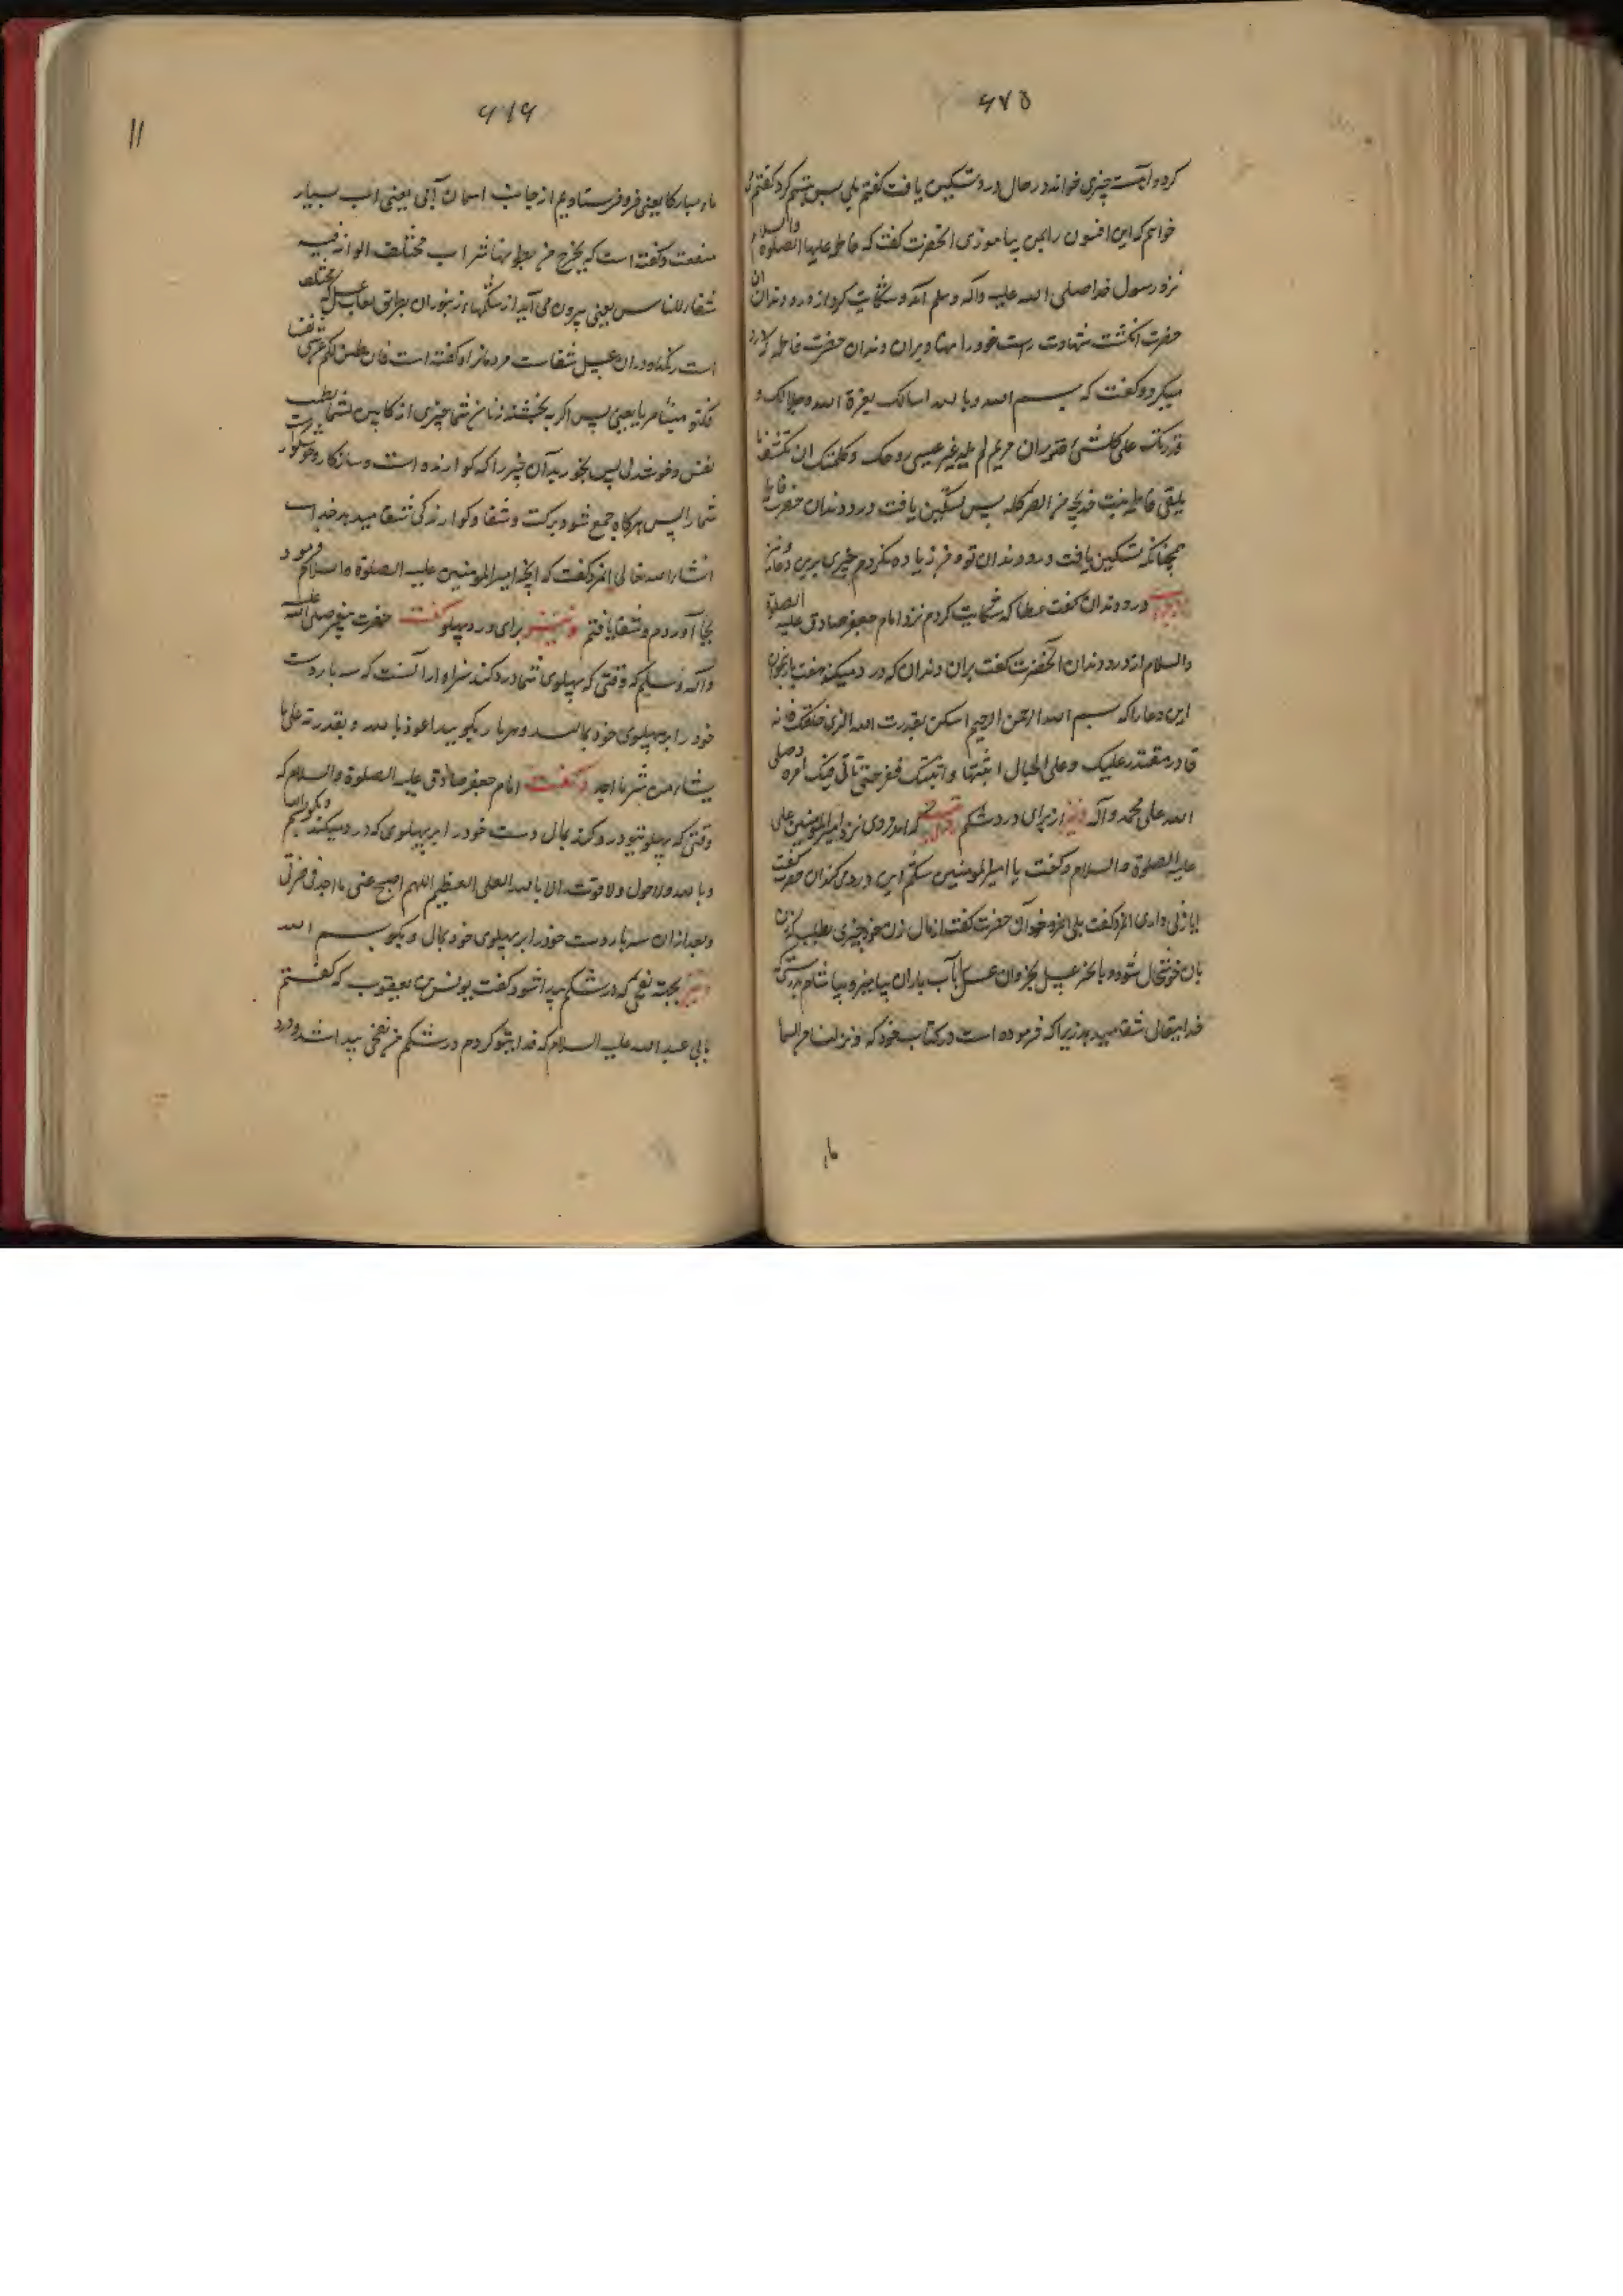 ۶۷۵
کرد و آهسته چیزی خواند در حال درد تسکین یافت گفتم بلی پس تبسم کرد گفتم
خواهم که این افسون را بمن بیاموزی آنحضرت گفت که فاطمه علیها الصلوة والسلام
نزد رسول خدا صلی الله علیه وآله وسلم آمد و شکایت کرد از درد دندان آن
حضرت انکشت شهادت راست خود را نهاد بران دندان حضرت فاطمه که درد
میکرد و گفت که بسم الله و بالله اسالک بعزة الله وجلالک و
قدرتک علی کل شئ ان مریم لم تلد غیر عیسی روحک وکلمتک ان تکشف ما
یلقی فاطمه بنت خدیجه من الضر کله پس تسکین یافت درد دندان حضرت فاطمه
همچنانکه تسکین یافت درد دندان تو و من زیاده نکردم چیزی برین دعا
درد دندان گفت عطا که شکایت کردم نزد امام جعفر صادق علیه الصلوة
والسلام از درد دندان آنحضرت گفت بران دندان که درد میکند هفت بار بخوان
این دعا را که بسم الله الرحمن الرحیم اسکن بقدرت الله الذی خلقک فانه
قادر مقتدر علیک وعلی الجبال اثبتها واثبتک فقر حتی یاتی فیک امره وصلی
الله علی محمد وآله ونیز از برای درد شکم که امد مردی نزد امیرالمومنین علی
علیه الصلوة والسلام وگفت یا امیرالمومنین شکم این درد می کند آن حضرت گفت
ایا زنی داری آنمرد گفت بلی حضرت گفت از مال زن خود چیزی بطلب که زن
بان خوشحال شود و با نخر عسل بخر وان عسل با آب باران بیامیز و بیاشام بدرستیکه
خدایتعالی شفا میدهد زیرا که فرموده است در کتاب خود که ونزلنا من السماء
ماء
۶۱۶
۱۱
ماء مبارکا یعنی فرو فرستادیم از جانب اسمان آبی یعنی اب بسیار
منفعت و گفته است که یخرج من بطونها شراب مختلف الوانه فیه
شفاء للناس یعنی بیرون می آید از شکمهاء زنبوران بطریق لعاب عسل که مختلف
است رنگهاء و دران عسل شفاست مردمانرا و گفته است فان طبن لکم عن شئ نفسا
فکلوه هنیئا مریا یعنی پس اگر به بخشند زنان شما چیزی از کابین بشما بطیب
نفس و خوشدلی پس بخورید آن چیز را که گوارنده است و سازگار و خوشگوار
شما را پس هرگاه جمع شود برکت و شفا و گوارندگی شفا میدهد خدا
انشاء الله تعالی آنمرد گفت که آنچه امیرالمومنین علیه الصلوة والسلام فرمود
بجا آوردم و شفا یافتم ونیز برای درد پهلو گفت حضرت پیغمبر صلی الله علیه
وآله وسلم که وقتی که پهلوی شما درد کند سزاوار آنست که سه بار دست
خود را بر پهلوی خود بمالید و هر بار بگویید اعوذ بالله وبقدرته علی ما
یشاء من شر ما اجد وگفت امام جعفر صادق علیه الصلوة والسلام که
وقتی که پهلو تیو درد کند بمال دست خود را بر پهلوی که درد میکند و بگو بسم الله
وبالله ولاحول ولاقوت الا بالله العلی العظیم اللهم امح عنی ما اجد فی
وبعد ازان سه بار دست خود را بر پهلوی خود بمال و بگو بسم الله
ونیز بجهة نفخی که در شکم پیدا شود گفت یونس بن یعقوب که گفتم
بابی عبدالله علیه السلام که فدای تو کردم در شکم من نفخی پیدا شد و درد